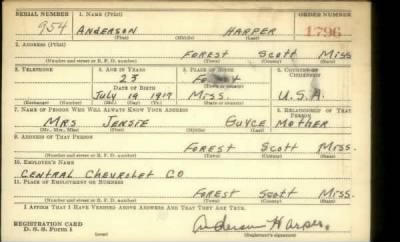 SERIAL NUMBER 1. NAME (Print) ORDER NUMBER
954 ANDERSON HARPER 1796
(First) (Middle) (Last)
2. ADDRESS (Print)
FOREST SCOTT MISS
(Number and street or R. F. D. number) (Town) (County) (State)
3. TELEPHONE 4. AGE IN YEARS 5. PLACE OF BIRTH 6. COUNTRY OF CITIZENSHIP
23
DATE OF BIRTH (Town or county)
JULY 19 1917 MISS. U.S.A.
(Exchange) (Number) (Mo.) (Day) (Yr.) (State or country)
7. NAME OF PERSON WHO WILL ALWAYS KNOW YOUR ADDRESS 8. RELATIONSHIP OF THAT PERSON
MRS JENSIE GUYCE MOTHER
(Mr., Mrs., Miss) (First) (Middle) (Last)
9. ADDRESS OF THAT PERSON
FOREST SCOTT MISS.
(Number and street or R. F. D. number) (Town) (County) (State)
10. EMPLOYER'S NAME
CENTRAL CHEVROLET CO
11. PLACE OF EMPLOYMENT OR BUSINESS
FOREST SCOTT MISS.
(Number and street or R. F. D. number) (Town) (County) (State)
I AFFIRM THAT I HAVE VERIFIED ABOVE ANSWERS AND THAT THEY ARE TRUE.
REGISTRATION CARD
D. S. S. Form 1 Anderson Harper
(Registrant's signature)